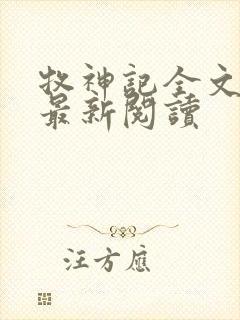 牧神記全文
最新閱讀
汪方應